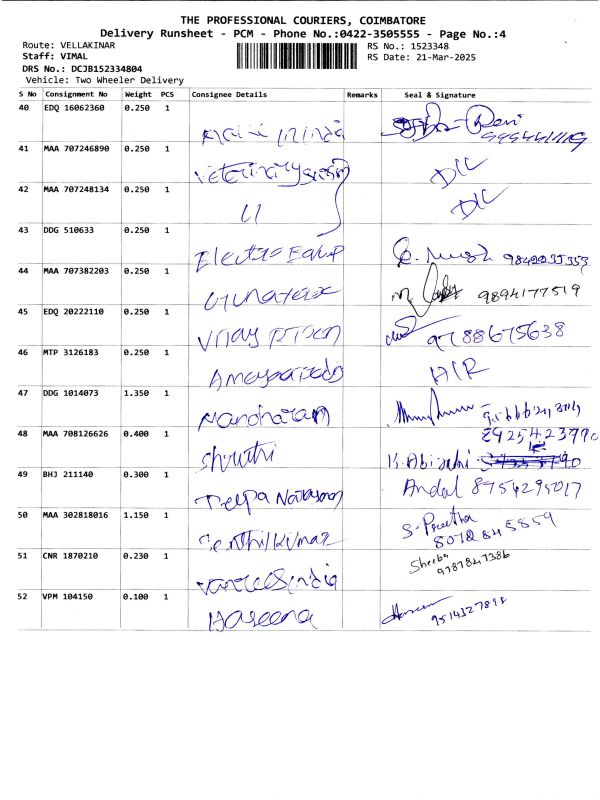 THE PROFESSIONAL COURIERS, COIMBATORE
Delivery Runsheet - PCM - Phone No.:0422-3505555 - Page No.:4
Route: VELLAKINAR
RS No.: 1523348
Staff: VIMAL
RS Date: 21-Mar-2025
DRS No.: DCJB152334804
Vehicle: Two Wheeler Delivery
S No Consignment No Weight PCS Consignee Details Remarks Seal & Signature
40 EDQ 16062360 0.250 1
41 MAA 707246890 0.250 1
DLC
42 MAA 707248134 0.250 1
DLC
43 DDG 510633 0.250 1
Electro Equip
44 MAA 707382203 0.250 1
9894177519
45 EDQ 20222110 0.250 1
Vijay
9788675638
46 MTP 3126183 0.250 1
47 DDG 1014073 1.350 1
Manoharam
48 MAA 708126626 0.400 1
8925423790
Shruthi K. Abi
49 BHJ 211140 0.300 1
Andal 8754295017
Deepa
50 MAA 302818016 1.150 1
Senthil Kumar S. Preetha
8072845859
51 CNR 1870210 0.230 1
Sheeba
9787847386
52 VPM 104150 0.100 1
Haseena
9514327898